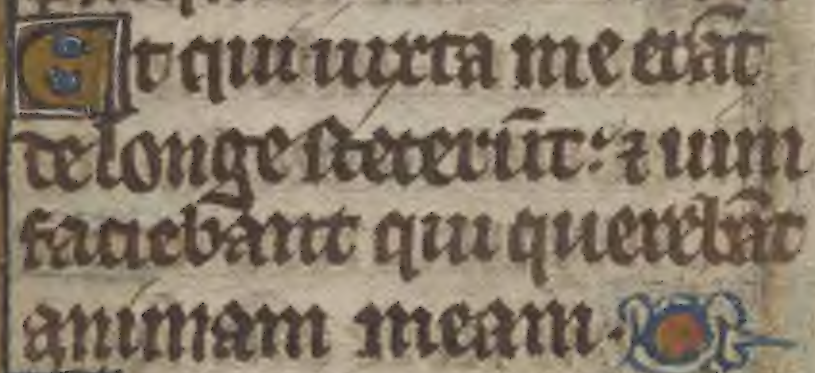 Et qui iuxta me erãt
de longe steterũt: ⁊ uim
faciebant qui querebãt
animam meam.